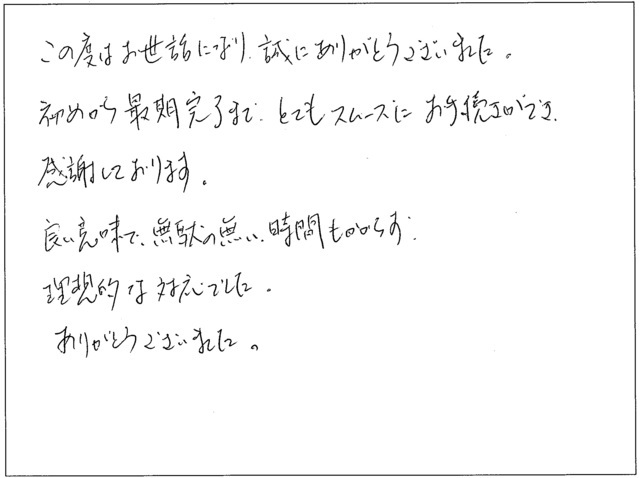 この度はお世話になり、誠にありがとうございました。
初めから最期完了まで、とてもスムーズにお手続きができ、
感謝しております。
良い意味で、無駄の無い、時間もかからず、
理想的な対応でした。
ありがとうございました。